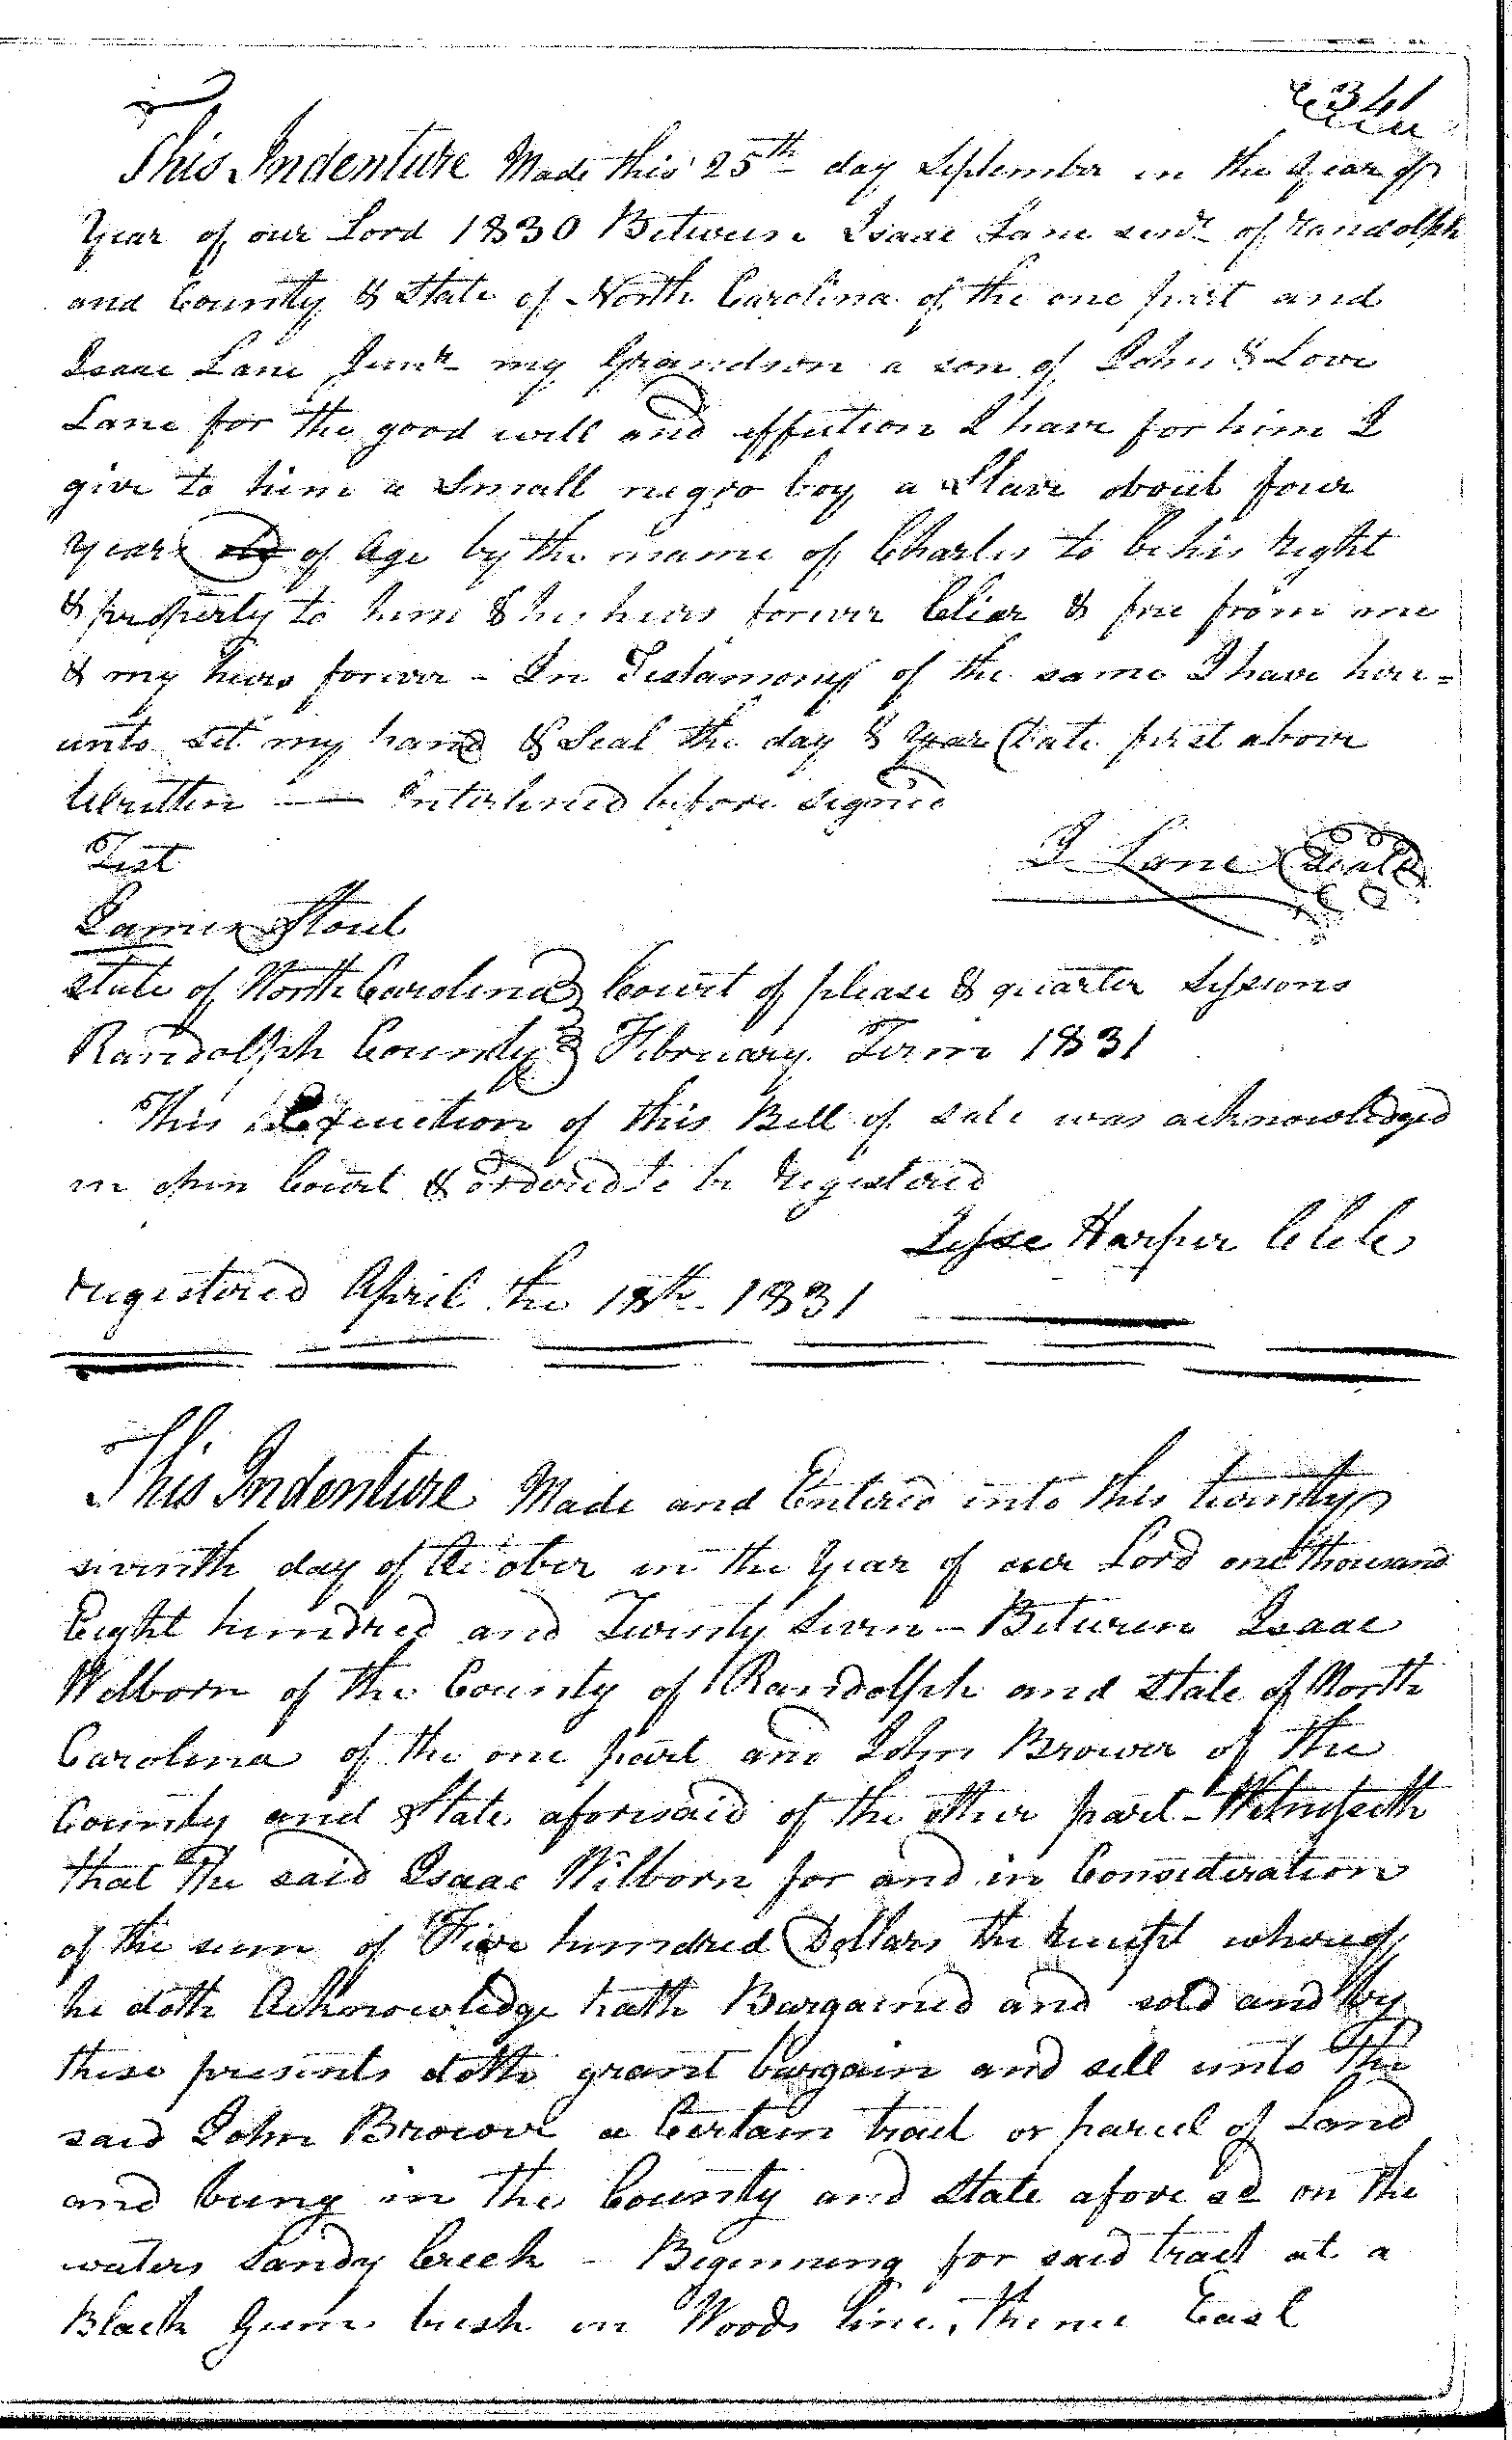 341
This Indenture Made this 25th day September in the Year of
Year of our Lord 1830 Between Isaac Lane senr of Randolph
and County & State of North Carolina of the one part and
Isaac Lane Junr my Grandson a son of John & Love
Lane for the good will and effection I have for him I
give to him a Small negro boy a Slave about four
years old of Age by the name of Charles to be his Right
& property to him & his heirs forever Clear & free from me
& my heirs forever - In Testamony of the same I have here=
unto set my hand & Seal the day & year Date first above
Written —— Interlined before signed
Test
I Lane Seal
Stout
State of North Carolina Court of please & quarter Sessions
Randolph County February Term 1831
This Execuction of this Bill of sale was acknowledged
in open Court & ordered to be Registered
Jesse Harper Clk
registered April the 18th 1831
This Indenture Made and Entered into this twenty
seventh day of October in the Year of our Lord one thousand
Eight hundred and Twenty Seven - Between Isaac
Welborn of the County of Randolph and State of North
Carolina of the one part and John Brower of the
County and State aforesaid of the other part - Witnesseth
that the said Isaac Wilborn for and in Consideration
of the sum of Five hundred Dollars the receipt whereof
he doth Acknowledge hath Bargained and sold and by
these presents doth grant bargain and sell unto the
said John Brower a Certain tract or parcel of Land
and being in the County and State afore sd on the
waters Sandy Creek - Beginning for said tract at a
Black Gum bush on Woods line, thence East